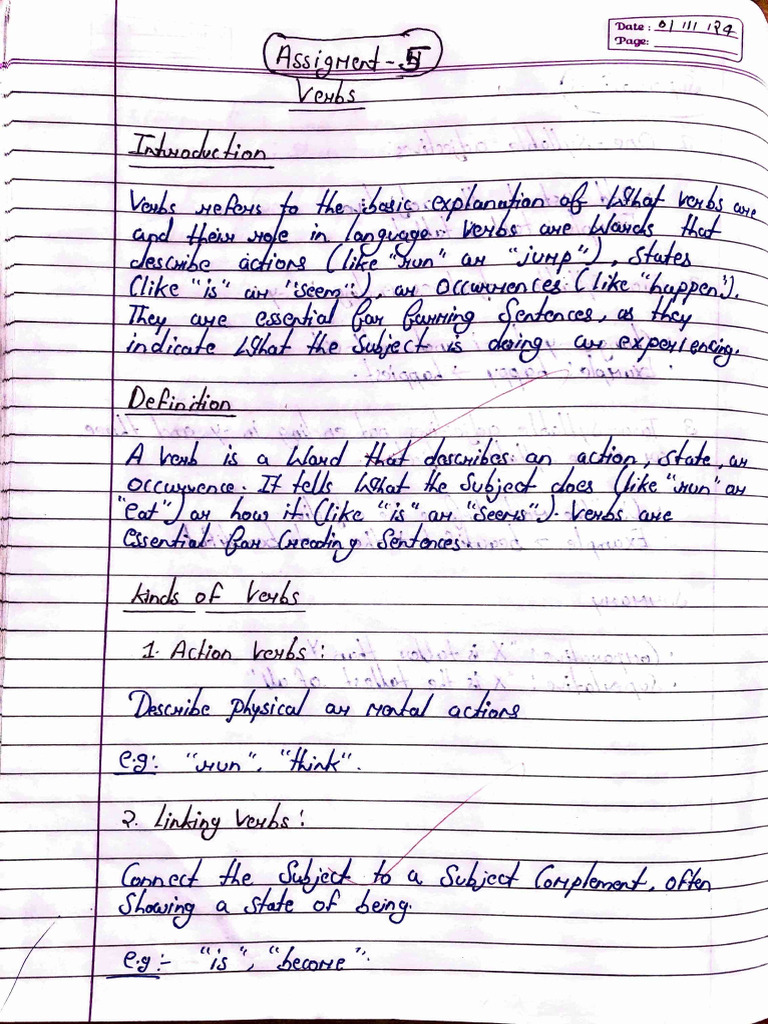 Date: 01/11/24
Page:
Assigment -
Verbs
Introduction
Verbs refers to the basic explanation of What verbs are
and their role in language. Verbs are Words that
describe actions (like "run" or "jump"), States
(like "is" or "seem"), or occurrences (like "happen").
They are essential for forming Sentences, as they
indicate What the Subject is doing or experiencing.
Definition
A verb is a Word that describes an action, State, or
occurrence. It tells What the Subject does (like "run" or
"eat") or how it (like "is" or "seems"). Verbs are
essential for Creading Sentences.
Kinds of Verbs
1. Action Verbs:
Describe Physical or mental actions
e.g:- "run", "think".
2. Linking Verbs:
Connect the Subject to a Subject Complement, often
Showing a State of being.
e.g:- "is", "become".